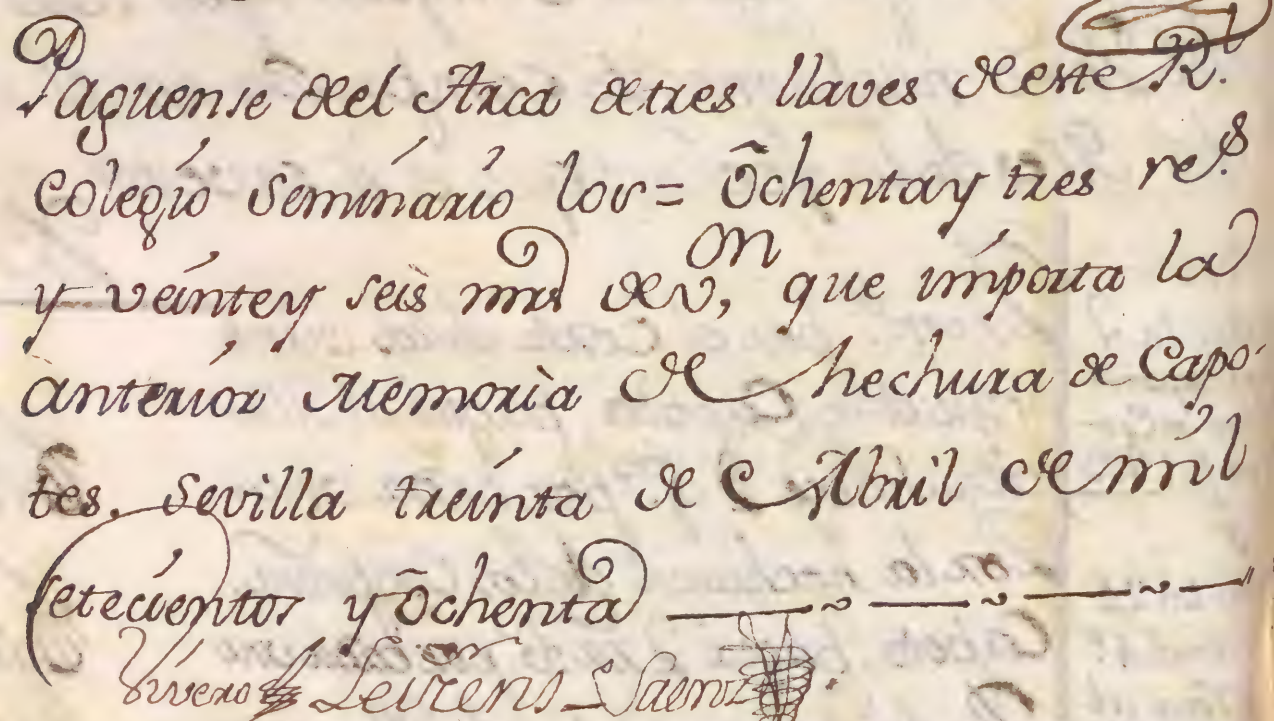 Paguense del Arca de tres llaves deeste R.l
Colegio Seminario los = õchentay tres re.s
y veintey seis mrs de v,on que importa la
anterior Memoria de hechura de Capo-
tes. Sevilla treinta de Abril de mil
setecientos y õchenta
Vivero Leirens Saenz